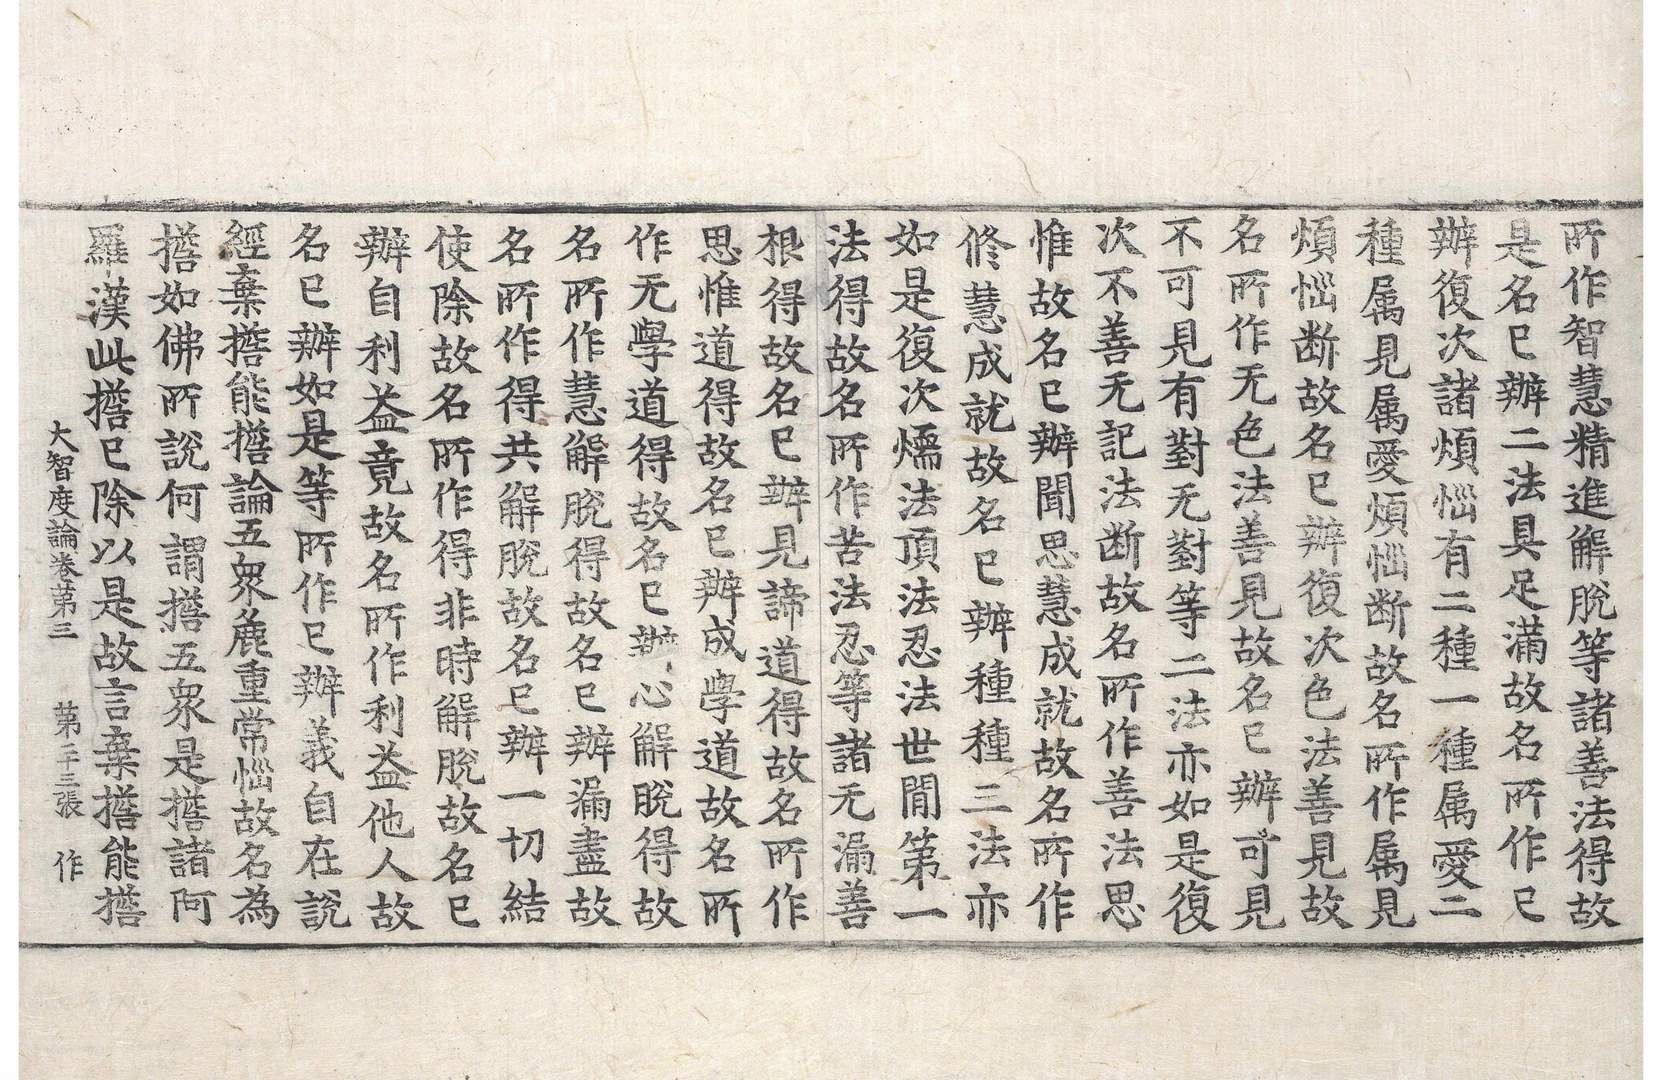 所作智慧精進解脫等諸善法得故
是名已辦二法具足滿故名所作已
辦復次諸煩惱有二種一種属愛二
種属見属愛煩惱断故名所作属見
煩惱断故名已辦復次色法善見故
名所作无色法善見故名已辦可見
不可見有對无對等二法亦如是復
次不善无記法断故名所作善法思
惟故名已辦聞思慧成就故名所作
修慧成就故名已辦種種三法亦
如是復次煗法頂法忍法世閒第一
法得故名所作苦法忍等諸无漏善
根得故名已辦見諦道得故名所作
思惟道得故名已辦成學道故名所
作无學道得故名已辦心解脫得故
名所作慧解脫得故名已辦漏盡故
名所作得共解脫故名已辦一切結
使除故名所作得非時解脫故名已
辦自利益竟故名所作利益他人故
名已辦如是等所作已辦義自在說
經棄擔能擔論五衆麁重常惱故名為
擔如佛所說何謂擔五衆是擔諸阿
羅漢此擔已除以是故言棄擔能擔
大智度論卷第三 第二十三張 作